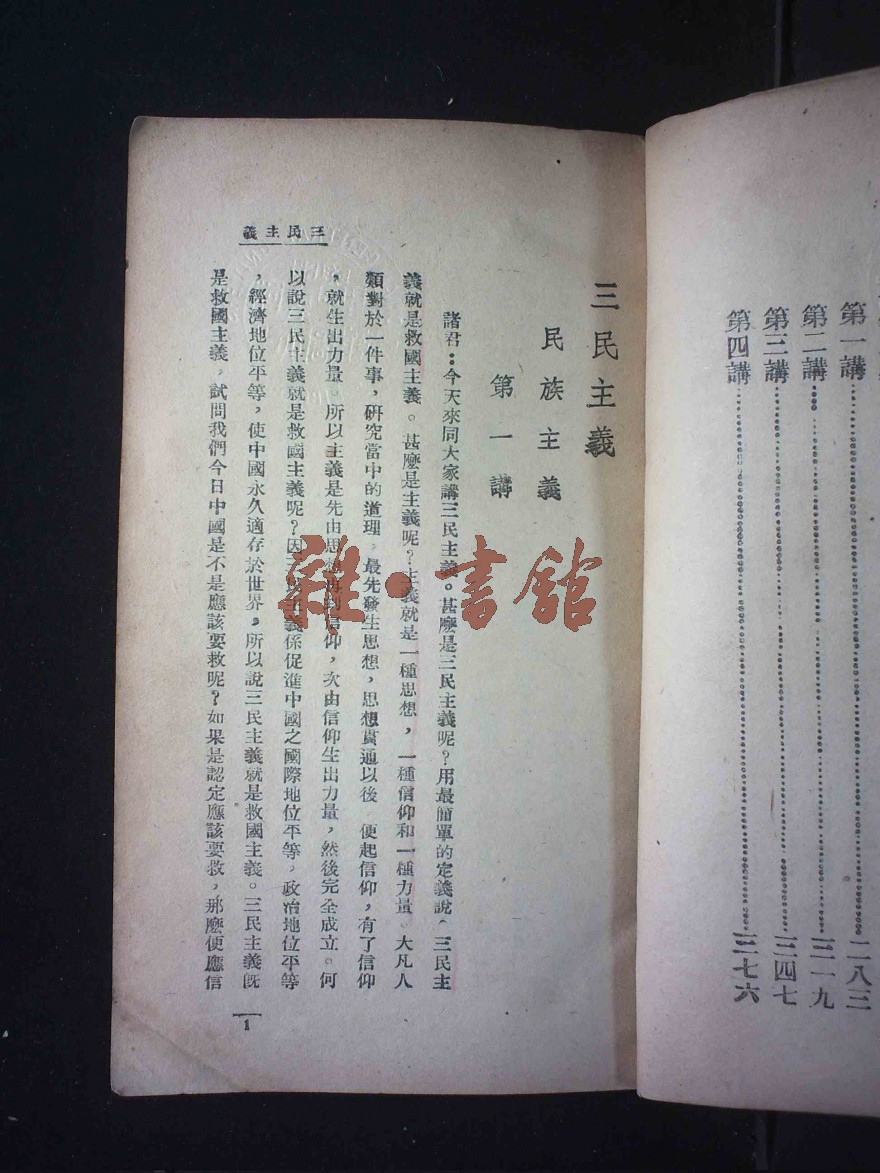 第一講……二八三
第二講……三一九
第三講……三四七
第四講……三七六
三民主義
三民主義
民族主義
第一講
諸君：今天來同大家講三民主義。甚麼是三民主義呢？用最簡單的定義說，三民主
義就是救國主義。甚麼是主義呢？主義就是一種思想，一種信仰和一種力量。大凡人
類對於一件事，研究當中的道理，最先發生思想，思想貫通以後　便起信仰，有了信仰
，就生出力量。所以主義是先由思想再到信仰，次由信仰生出力量，然後完全成立。何
以說三民主義就是救國主義呢？因三民主義係促進中國之國際地位平等，政治地位平等
，經濟地位平等，使中國永久適存於世界，所以說三民主義就是救國主義。三民主義既
是救國主義，試問我們今日中國是不是應該要救呢？如果是認定應該要救，那麼便應信
1
雜·書館